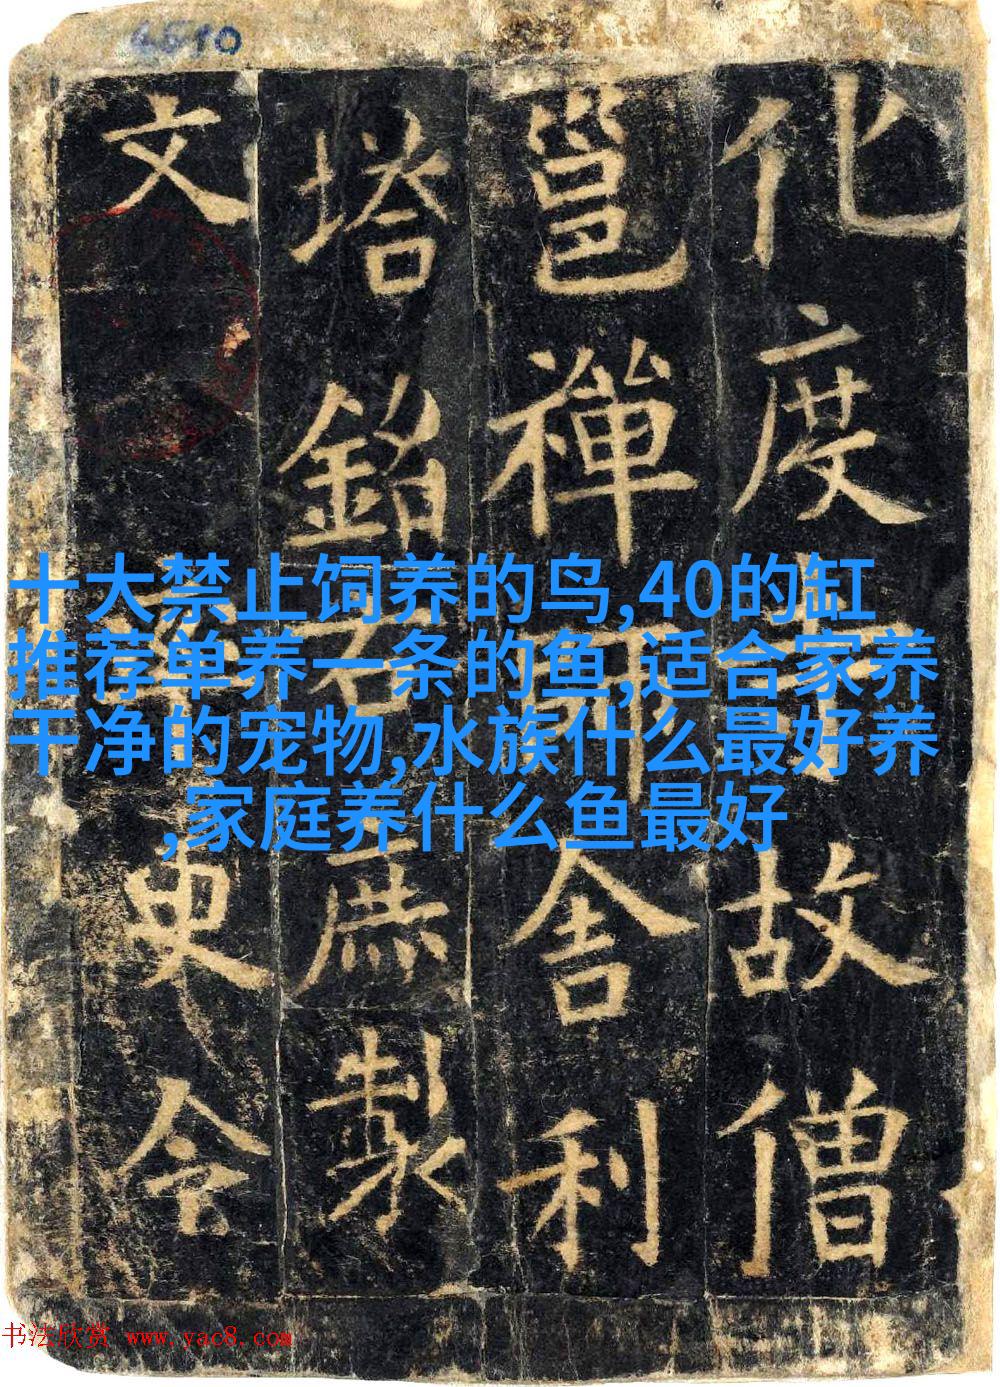 化度寺故僧
邕禪師舍利
塔銘右庶製
文率更令
十大禁止饲养的鸟,40的缸
推荐单养一条的鱼,适合家养
干净的宠物,水族什么最好养
,家庭养什么鱼最好
书法欣赏 www.yac8.com